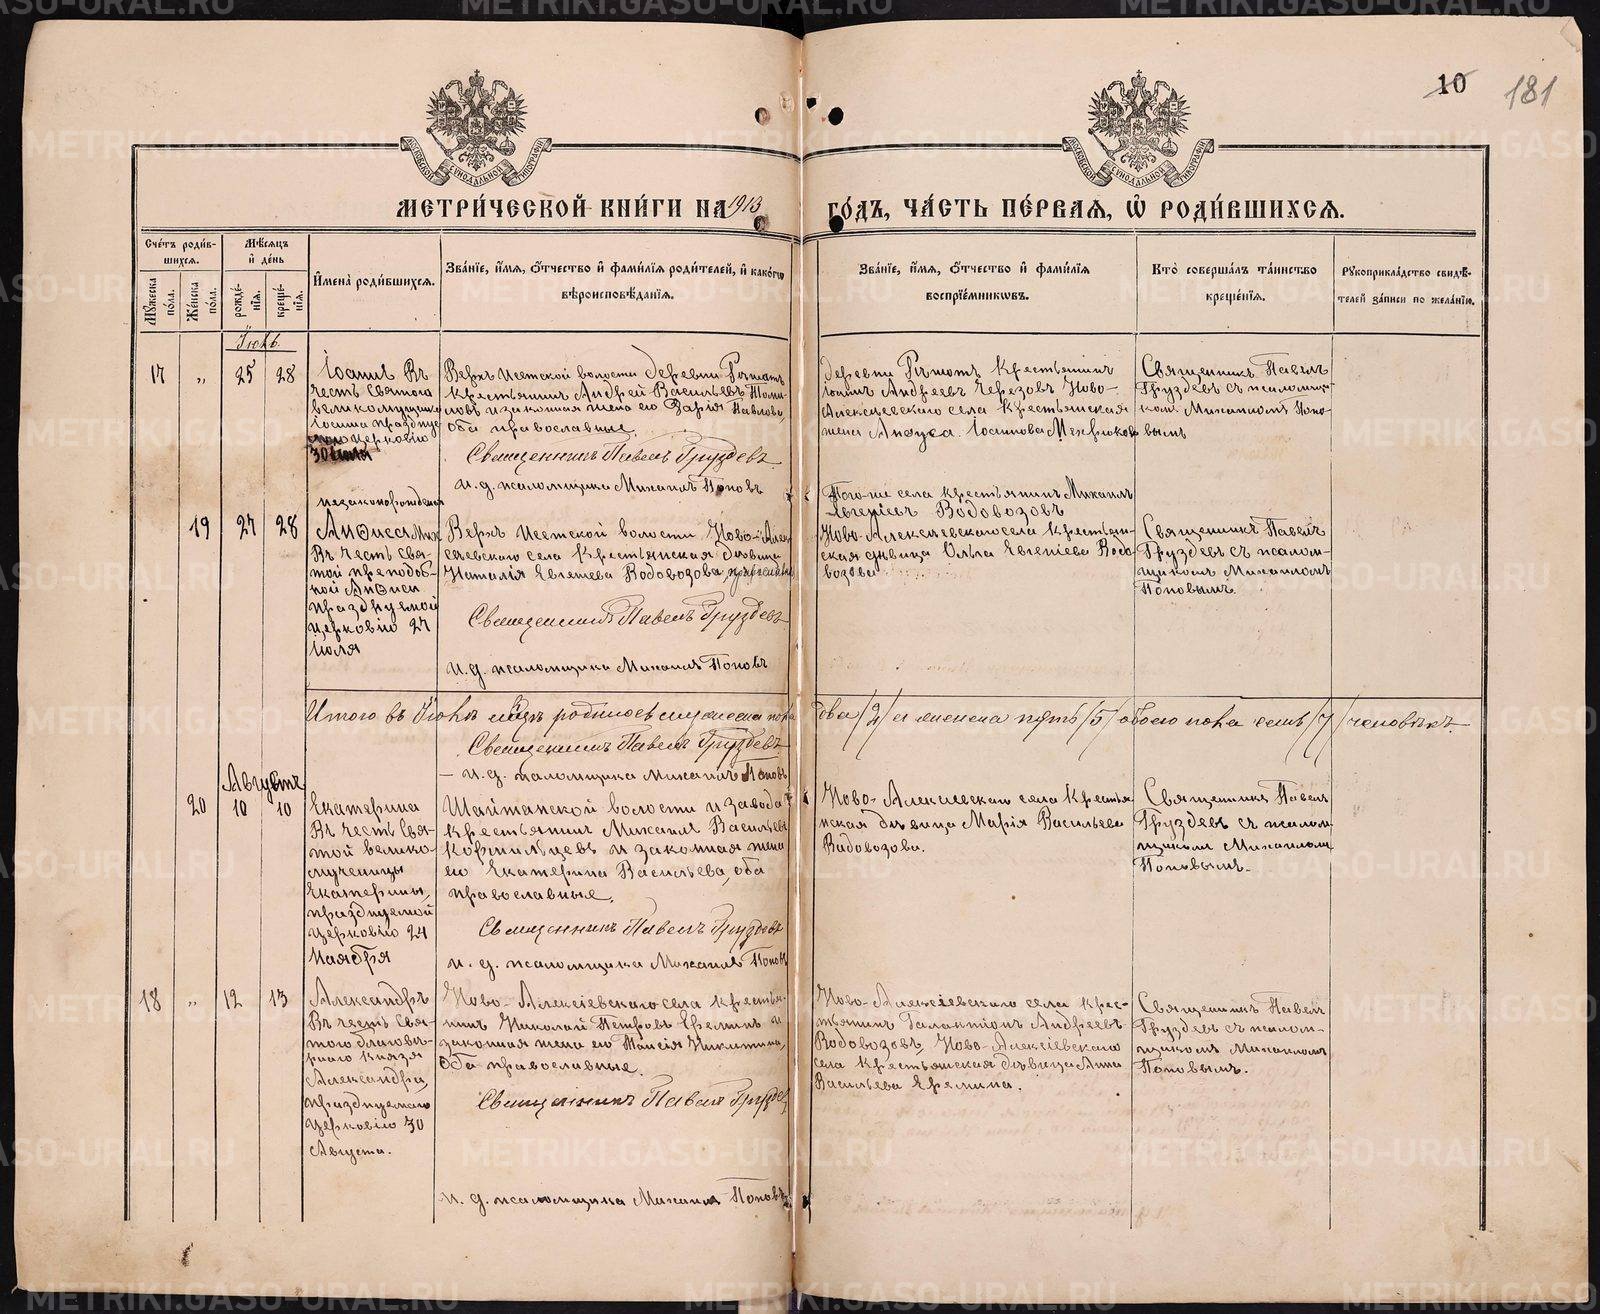 10 181
МОСКОВСКОЙ СѴНОДАЛЬНОЙ ТИПОГРАФІИ
МОСКОВСКОЙ СѴНОДАЛЬНОЙ ТИПОГРАФІИ
МЕТРИ́ЧЕСКОЙ КНИ́ГИ НА 1913 ГО́ДЪ, ЧА́СТЬ ПЕ́РВАЯ, Ѿ РОДИ́ВШИХСЯ.
Сче́тъ роди́вшихся.
Мѣ́сяцъ и҆ де́нь
Му́жеска по́ла.
Же́нска по́ла.
рожде́нїя.
креще́нїя.
И҆мена̀ роди́вшихся.
Зва́нїе, и҆́мя, ѻ҆́тчество и҆ фами́лїя роди́телей, и҆ како́гѡ вѣроисповѣ́данїя.
Зва́нїе, и҆́мя, ѻ҆́тчество и҆ фами́лїя воспрїе́мникѡвъ.
Кто̀ соверша́лъ та́инство креще́нїя.
Рꙋкоприкла́дство свидѣ́телей за́писи по жела́нїю.
17 " 25 28
Іоаннъ Въ
честь Святого
великомученика
Іоанна праздну
церковію
Верхъ Исетской волости деревни
крестьянинъ Андрей Васильевъ
и законная жена его Павлова,
оба православные.
Священникъ Павелъ Груздевъ
и. д. псаломщика Михаилъ Поповъ
деревни крестьянинъ
Андреевъ Ново-
Алексѣевскаго села крестьянская
жена Іоаннова
Священникъ Павелъ
Груздевъ съ псаломщи-
комъ Михаиломъ Попо-
вымъ
незаконнорожденная
19 27 28
Анѳиса
Въ честь Свя-
той преподоб-
ной Анѳисы
празднуемой
церковію 27
Іюля
Верхъ Исетской волости Ново-Алек
сѣевскаго села крестьянская дѣвица
Наталія Евгеніева Водовозова,
Священникъ Павелъ Груздевъ
и. д. псаломщика Михаилъ Поповъ
Того-же села крестьянинъ Михаилъ
Евгеніевъ Водовозовъ
Ново-Алексѣевскаго села крестьян-
ская дѣвица Ольга Евгеніева Водо-
возова
Священникъ Павелъ
Груздевъ съ псалом-
щикомъ Михаиломъ
Поповымъ.
Итого въ Іюлѣ м-цѣ родилось мужеска пола два /2/ и женска пять /5/ обоего пола семь /7/ человѣкъ.
Священникъ Павелъ Груздевъ
и. д. псаломщика Михаилъ Поповъ
Августъ
20 10 10
Екатерина
Въ честь Свя-
той велико-
мученицы
Екатерины,
празднуемой
церковію 24
Ноября
Шайтанской волости и завода
крестьянинъ Михаилъ Васильевъ
Кормильцевъ и законная жена
его Екатерина Васильева, оба
православные.
Священникъ Павелъ Груздевъ
и. д. псаломщика Михаилъ Поповъ
Ново-Алексіевскаго села крестья
нская дѣвица Марія Васильева
Водовозова.
Священникъ Павелъ
Груздевъ съ псалом-
щикомъ Михаиломъ
Поповымъ.
18 " 12 13
Александръ
Въ честь Свя-
того благовѣ-
рнаго Князя
Александра,
празднуемаго
церковію 30
Августа.
Ново-Алексіевскаго села крестья-
нинъ Николай Петровъ Ереминъ и
законная жена его Таисія Никитина,
оба православные.
Священникъ Павелъ Груздевъ
и. д. псаломщика Михаилъ Поповъ
Ново-Алексіевскаго села крес-
тьянинъ Галактіонъ Андреевъ
Водовозовъ, Ново-Алексіевскаго
села крестьянская дѣвица Анна
Васильева Еремина.
Священникъ Павелъ
Груздевъ съ псалом-
щикомъ Михаиломъ
Поповымъ.
METRIKI.GASO-URAL.RU